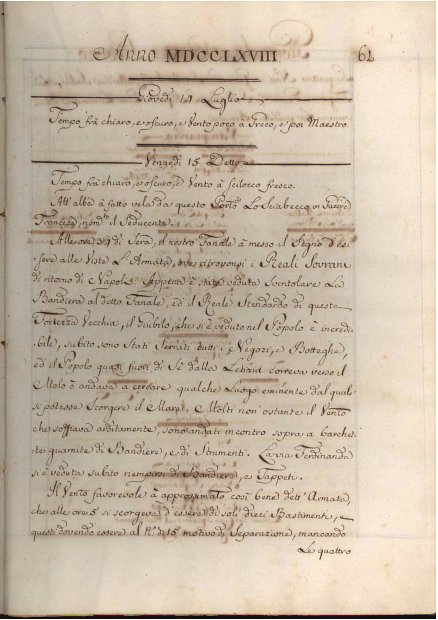 Anno MDCCLXVIII 62
Giovedì 14 Luglio
Tempo frà chiaro, e oscuro, e Vento poco à Greco, e poi Maestro
Venardi 15 Detto
Tempo frà chiaro, e oscuro, ed Vento à Scilocco fresco.
All'alba à fatto vela da questo Porto Lo Sciabecco in Guerra
Francese, nom.to il Seducente.
Alle ore 24 di Sera, il nostro Fanale à messo il Segno d'es-
sere alle Viste L'Armata, ove ritrovonsi i Reali Sovrani
di ritorno di Napoli. Appena è stata veduta Sventolare La
Bandiera al detto Fanale, ed il Reale Stendardo di questa
Fortezza Vecchia, il Giubilo, che si è veduto nel Popolo è incredi-
bile, subito sono Stati Serrati tutti i Negozi, e Botteghe,
ed il Popolo quasi fuori di Sè dalla Letizia correva verso il
Molo ò andava a cercare qualche Luogo eminente dal quale
si potesse Scorgere il Mare. Molti non ostante il Vento
che soffiava arditamente, sono andati incontro sopra a barchet-
te guarnite di Bandiere, e di Strumenti. La via Ferdinanda
si è veduta subito riempirsi di Bandiere, e Tappeti.
Il Vento favorevole à approssimato così bene dett'Armata
che alle ore 5 si scorgeva d'essere di soli dieci Bastimenti, e
questi dovendo essere al N.o di 15 motivo di Separazione, mancando
Le quattro